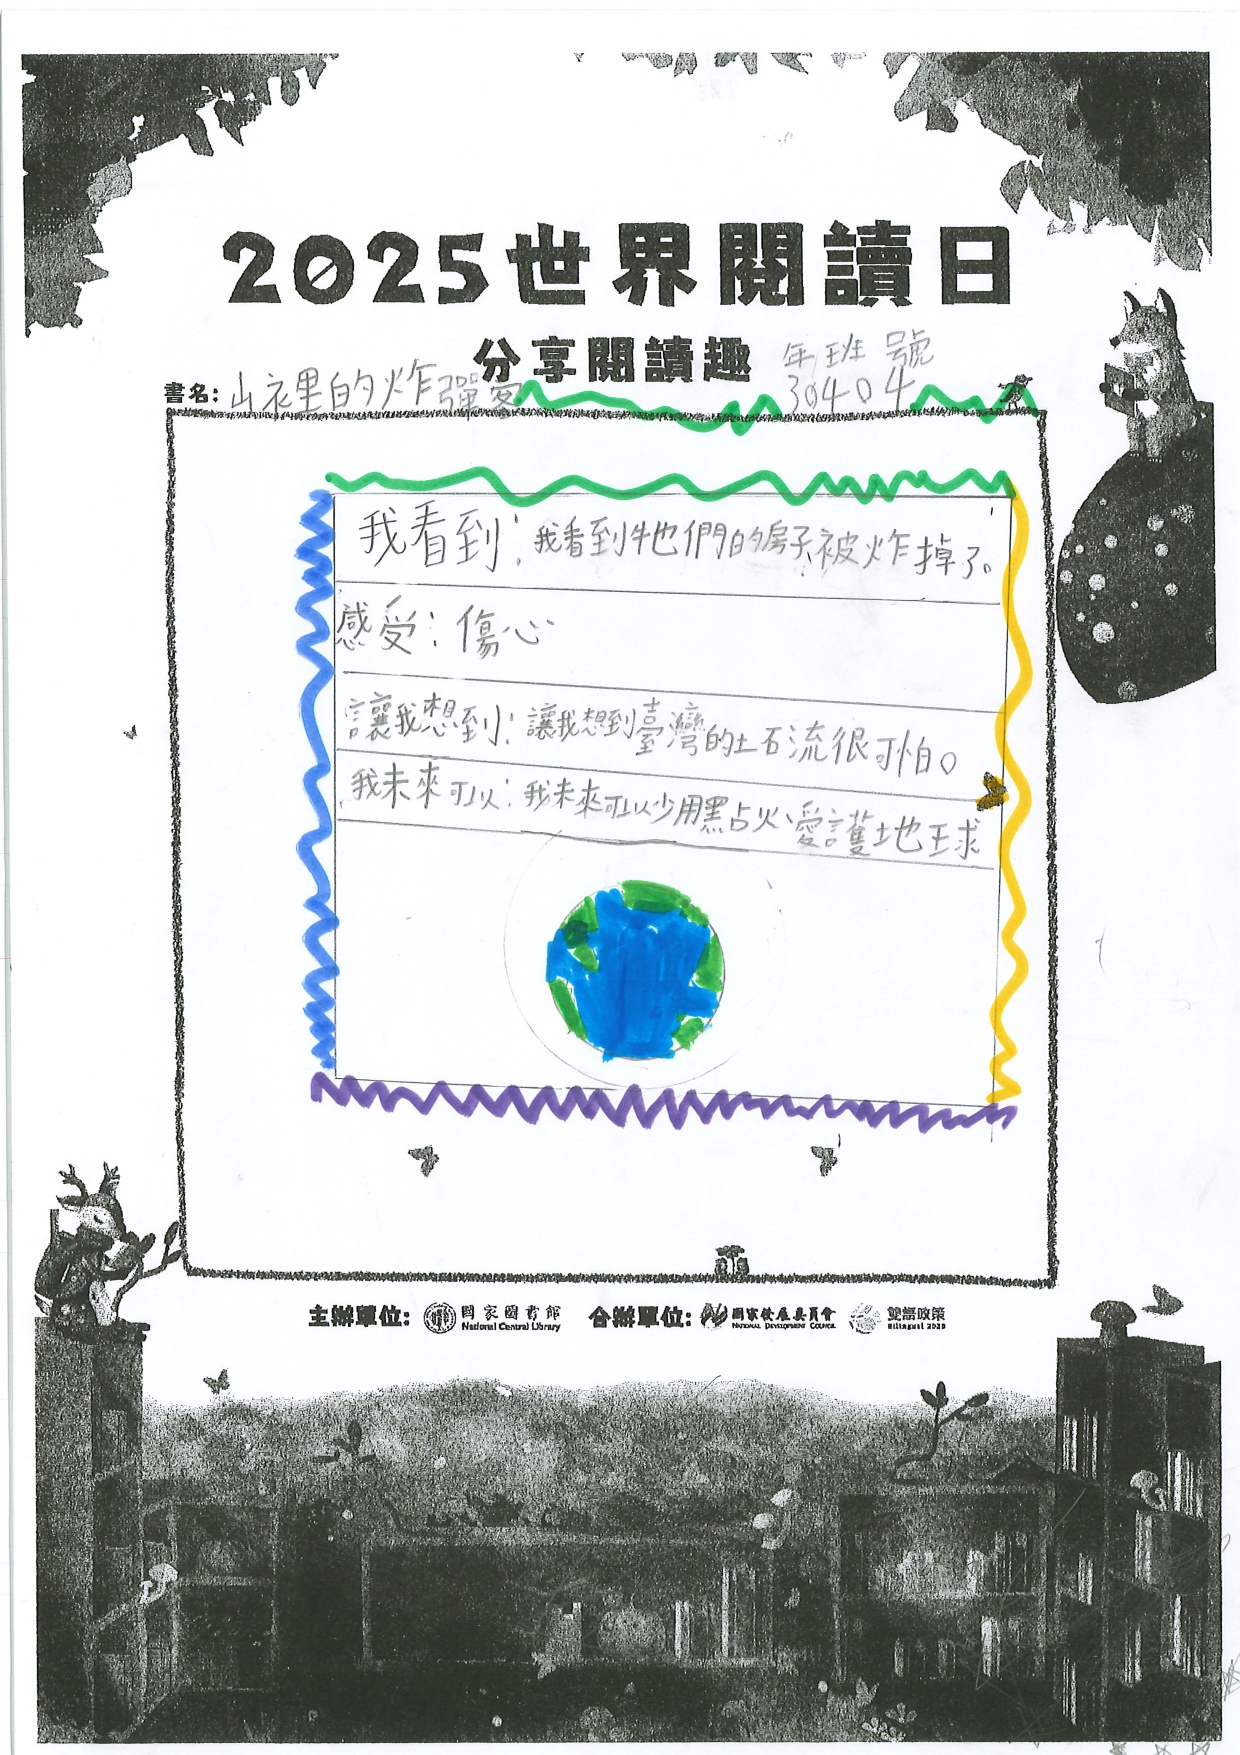 2025世界閱讀日
分享閱讀趣
年班 號
書名:山裡的炸彈客
30404
我看到:我看到牠們的房子被炸掉了。
感受:傷心
讓我想到:讓我想到臺灣的土石流很可怕。
我未來可以:我未來可以少用點火、愛護地球
主辦單位: 國家圖書館 合辦單位: 國家發展委員會 雙語政策
National Central Library NATIONAL DEVELOPMENT COUNCIL Bilingual 2030